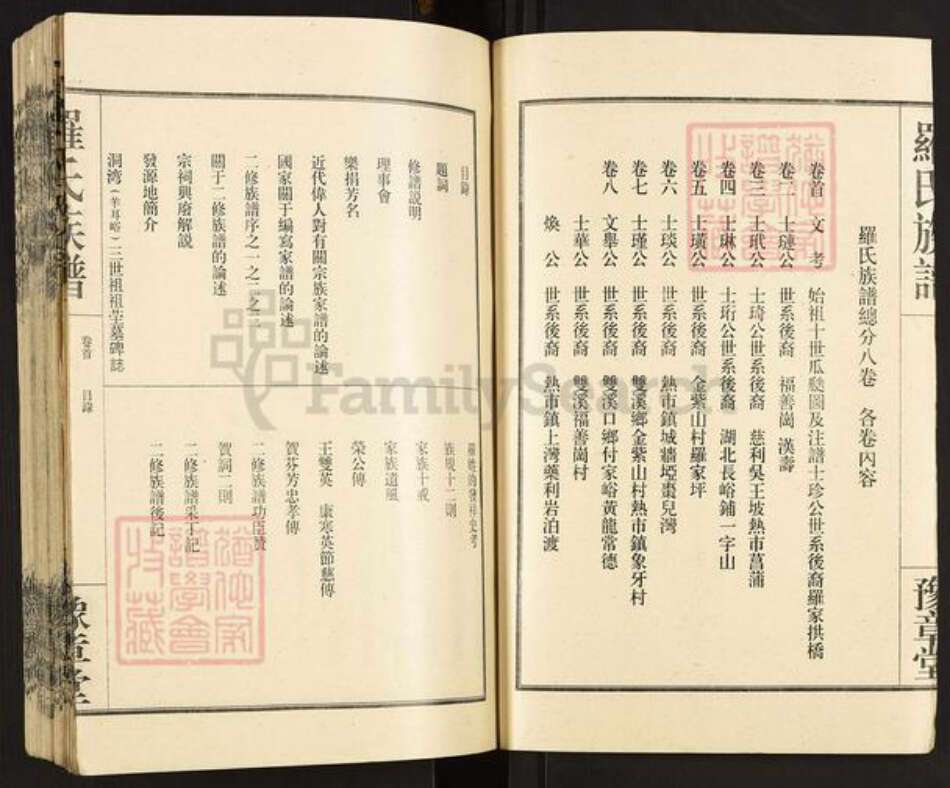 羅氏族譜
豫章堂
羅氏族譜總分八卷 各卷內容
卷首 文考 始祖十世瓜瓞圖及注譜士珍公世系後裔羅家拱橋
卷二 士璉公 世系後裔 福善崗 漢壽
卷三 士玳公 士琦公世系後裔 慈利吳王坡熱市菖蒲
卷四 士琳公 士珩公世系後裔 湖北長峪鋪一字山
卷五 士璜公 世系後裔 金紫山村羅家坪
卷六 士琰公 世系後裔 熱市鎮城牆埡棗兒灣
卷七 士瑾公 世系後裔 雙溪鄉金紫山村熱市鎮象牙村
卷八 文舉公 世系後裔 雙溪口鄉付家峪黃龍常德
士華公 世系後裔 雙溪福善崗村
煥公 世系後裔 熱市鎮上灣藥利岩泊渡
目錄
題詞
修譜説明
理事會
樂捐芳名
近代偉人對有關宗族家譜的論述
國家關于編寫家譜的論述
二修族譜序之一之二之三
關于二修族譜的論述
宗祠興廢解説
發源地簡介
洞湾（羊耳峪）三世祖祖塋墓碑誌
羅姓的發祥史考
族規十二則
家族十戒
家族遺風
榮公傳
王雙英 康寒英節慈傳
賀芬芳忠孝傳
二修族譜功臣贊
賀詞二則
二修族譜采手記
二修族譜後記
羅氏族譜
卷首 目錄
豫章堂
FamilySearch